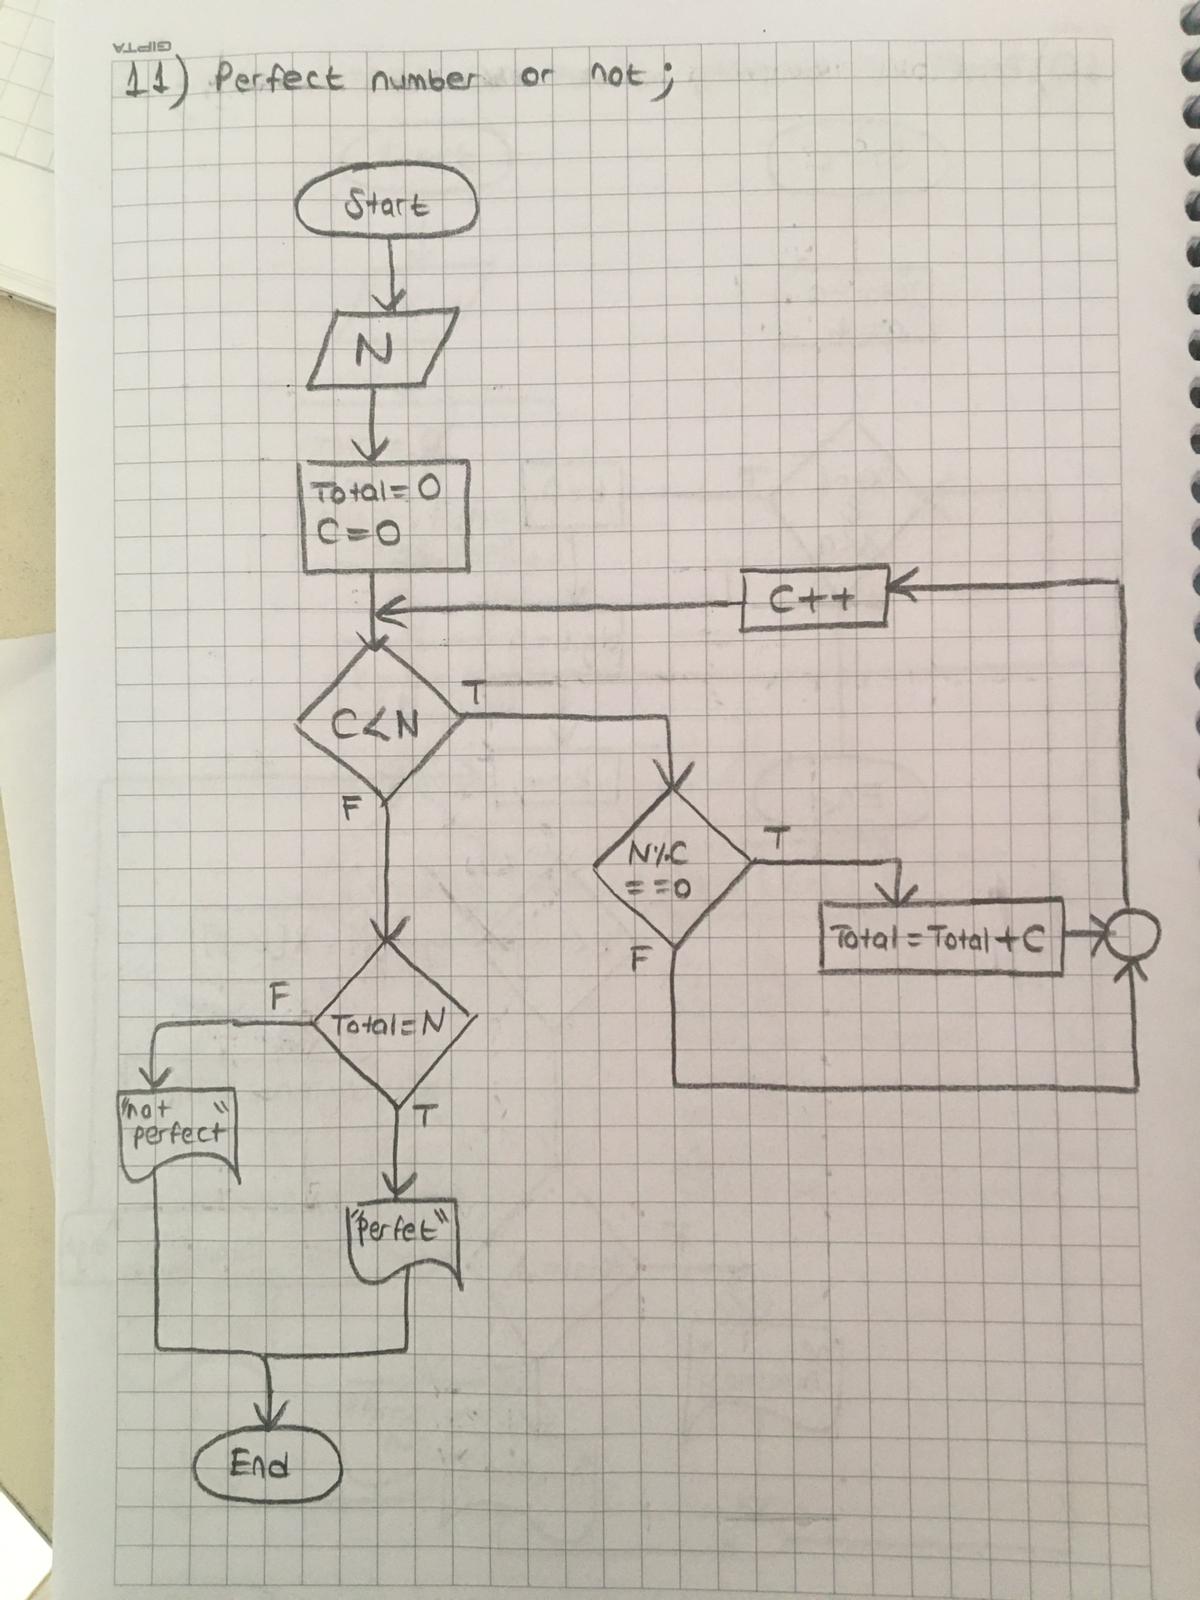 GIPTA
11) Perfect number or not;
Start
N
Total=0
C=0
C++
C<N
T
F
N%C
==0
T
F
Total=Total+C
Total=N
F
T
"not
perfect"
"Perfet"
End